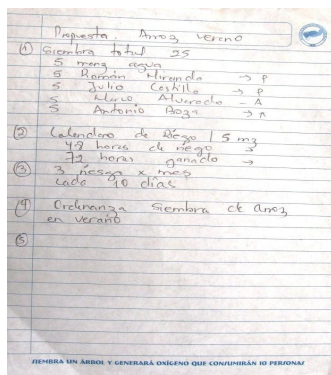 Propuesta. Arroz verano
① Siembra total 25
5 menos agua
5 Román Miranda → P
5 Julio Castillo → P
5 Marco Alvarado - A
5 Antonio → A
② Calendario de Riego / 5 mz
48 horas de riego →
72 horas ganado →
③ 3 riegos x mes
cada 10 días
④ Ordenanza Siembra de arroz
en verano
⑤
SIEMBRA UN ÁRBOL Y GENERARÁ OXÍGENO QUE CONSUMIRÁN 10 PERSONAS